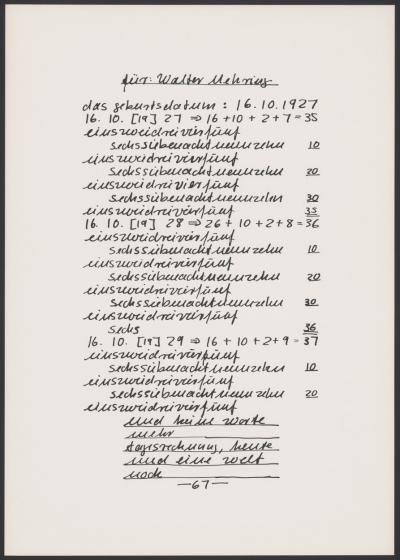 für: Walter Mehring
das geburtsdatum : 16.10.1927
16. 10. [19] 27 ⇒ 16 + 10 + 2 + 7 = 35
einszweidreivierfünf
sechssiebenachtneunzehn 10
einszweidreivierfünf
sechssiebenachtneunzehn 20
einszweidreivierfünf
sechssiebenachtneunzehn 30
einszweidreivierfünf 35
16. 10. [19] 28 ⇒ 26 + 10 + 2 + 8 = 36
einszweidreivierfünf
sechssiebenachtneunzehn 10
einszweidreivierfünf
sechssiebenachtneunzehn 20
einszweidreivierfünf
sechssiebenachtneunzehn 30
sechs 36
16. 10. [19] 29 ⇒ 16 + 10 + 2 + 9 = 37
einszweidreivierfünf
sechssiebenachtneunzehn 10
einszweidreivierfünf
sechssiebenachtneunzehn 20
einszweidreivierfünf
und keine worte
mehr
tagesrechnung, heute
und eine welt
noch
—67—